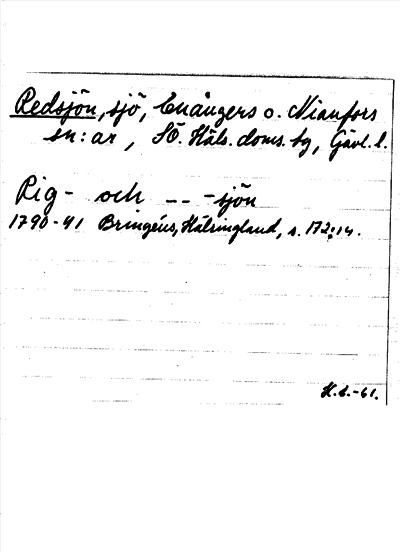 Redsjön, sjö, Enångers o. Nianfors
sn:ar, SÖ. Häls. doms.bg, Gävl.l.
Rig- och -- -sjön
1790-91 Bringéus, Hälsingland, s. 172:14.
H.L.-61.